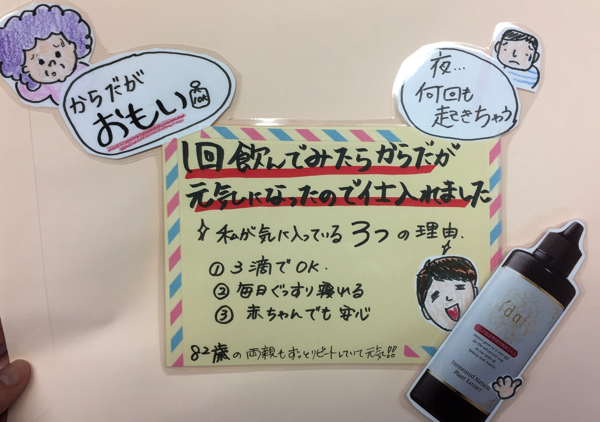 からだが
おもい
10K
夜…
何回も
起きちゃう
1回飲んでみたらからだが
元気になったので仕入れました
私が気に入っている3つの理由.
① 3滴でOK.
② 毎日ぐっすり寝れる
③ 赤ちゃんでも安心
82歳の両親もずっとリピートしていて元気!!
Fermented
Plant Extract